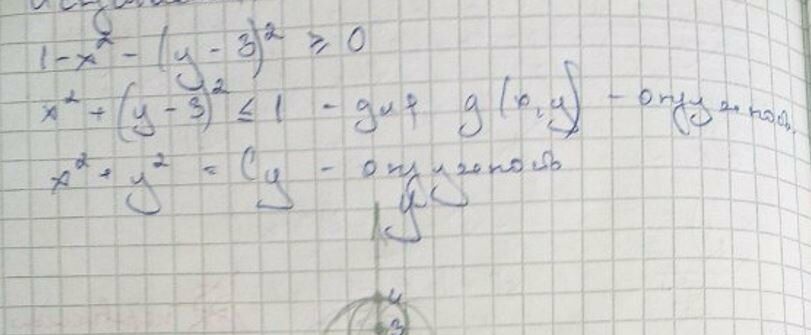 1 - x² - (y - 3)² ≥ 0
x² + (y - 3)² ≤ 1 - для g(x,y) - окружность
x² + y² = Cy - окружность
y
4
3